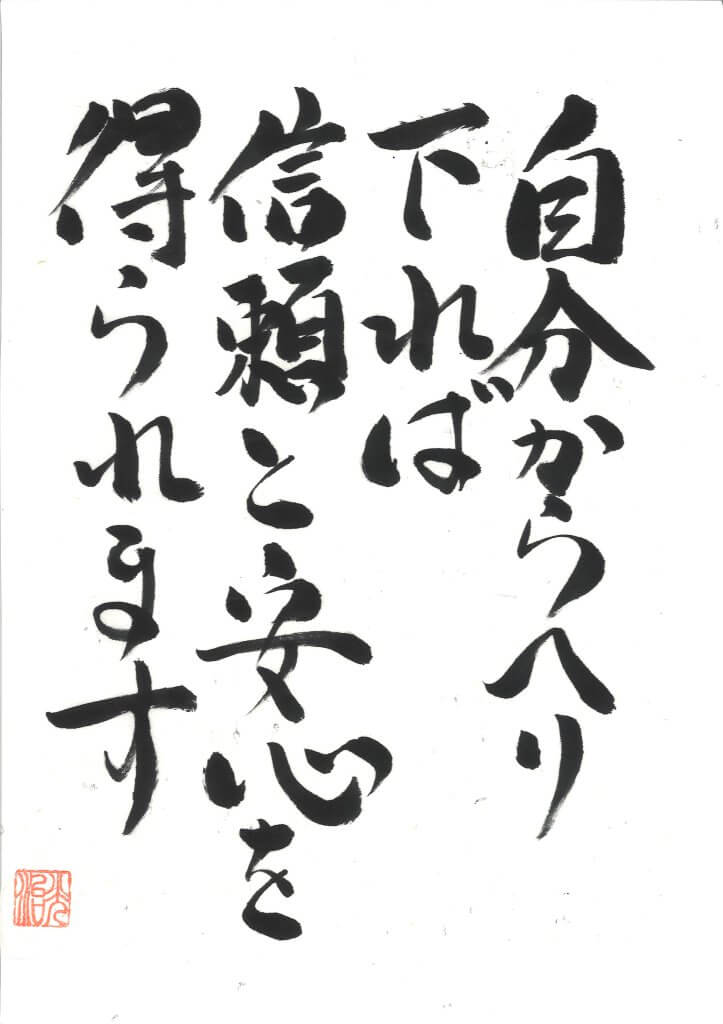 自分からへり
下れば
信頼と安心を
得られます